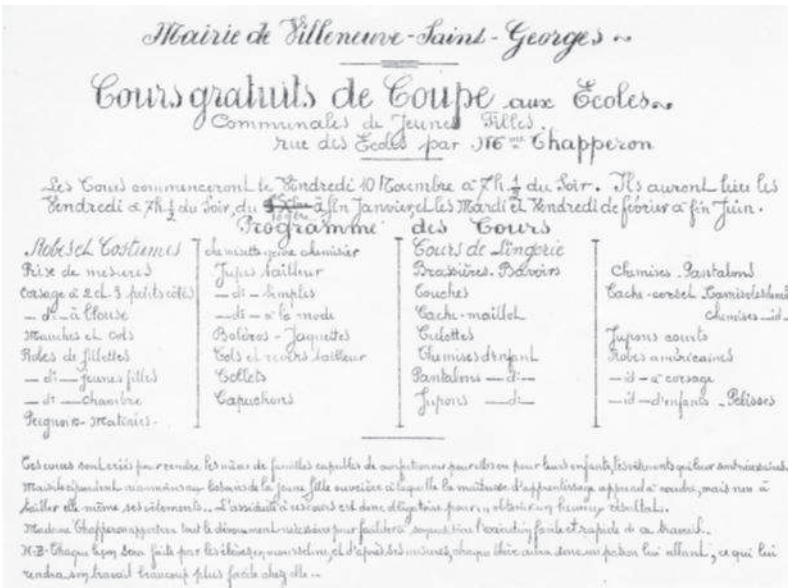 Mairie de Villeneuve-Saint-Georges
Cours gratuits de Coupe aux Ecoles
Communales de Jeunes Filles
rue des Ecoles par Mme Chapperon
Les Cours commenceront le Vendredi 10 Novembre à 7h ½ du Soir. Ils auront lieu les
Vendredi à 7h ½ du Soir, du à fin Janvier, et les Mardi et Vendredi de février à fin Juin.
Programme des Cours
Robes et Costumes
Prise de mesures
Corsage à 2 et 3 petits côtés
— do — à Blouse
Manches et Cols
Robes de fillettes
— do — jeunes filles
— do — chambre
Peignoirs - Matinées -
chemisette genre chemisier
Jupes tailleur
— do — simples
— do — à la mode
Boléros - Jaquettes
Cols et revers tailleur
Collets
Capuchons
Cours de Lingerie
Brassières - Bavoirs
Couches
Cache-maillot
Culottes
Chemises d'enfant
Pantalons — do —
Jupons — do —
Chemises - Pantalons
Cache-corset Camisoles
chemises — id —
Jupons courts
Robes américaines
— id — à corsage
— id — d'enfants - Pelisses
Ces cours sont créés pour rendre les mères de familles capables de confectionner pour elles ou pour leurs enfants, les vêtements qui leur sont nécessaires.
Mais ils répondent aussi aux besoins de la jeune fille ouvrière à laquelle la maîtresse d'apprentissage apprend à coudre, mais non à
tailler elle même ses vêtements. L'assiduité à ces cours est donc obligatoire pour en obtenir un heureux résultat.
Madame Chapperon apportera tout le dévouement nécessaire pour l'exécution facile et rapide de ce travail.
N-B- Chaque leçon sera faite par les élèves, en mousseline, et d'après ses mesures, chaque élève aura donc un patron lui allant, ce qui lui
rendra son travail beaucoup plus facile chez elle